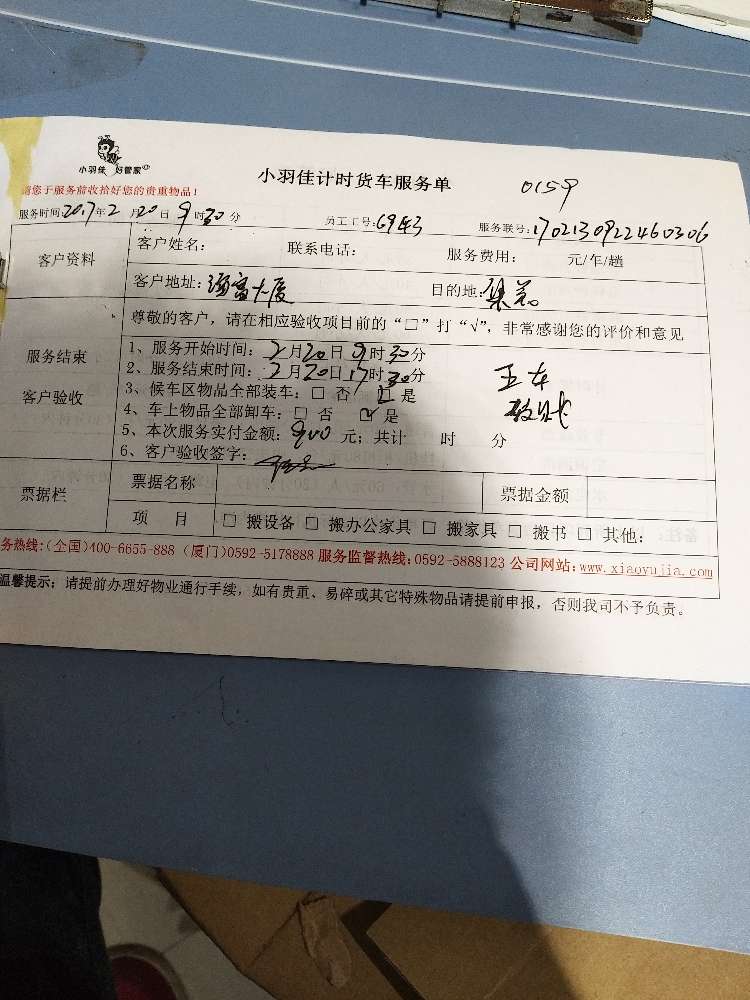 小羽佳 好管家
小羽佳计时货车服务单 0159
请您于服务前收拾好您的贵重物品！
服务时间2017年2月20日9时30分 员工工号:6943 服务联号:1702130922460306
客户资料
客户姓名: 联系电话: 服务费用: 元/年/趟
客户地址: 大厦 目的地:集美
服务结束
客户验收
尊敬的客户，请在相应验收项目前的“□”打“√”，非常感谢您的评价和意见
1、服务开始时间: 2月20日9时30分
2、服务结束时间: 2月20日17时30分
3、候车区物品全部装车: □ 否 ☑ 是
4、车上物品全部卸车: □ 否 ☑ 是
5、本次服务实付金额: 900 元; 共计 时 分
6、客户验收签字:
五车
票据栏
票据名称 票据金额
项 目 □ 搬设备 □ 搬办公家具 □ 搬家具 □ 搬书 □ 其他:
务热线:(全国)400-6655-888 (厦门)0592-5178888 服务监督热线:0592-5888123 公司网站:www.xiaoyujia.com
温馨提示: 请提前办理好物业通行手续, 如有贵重、易碎或其它特殊物品请提前申报, 否则我司不予负责。